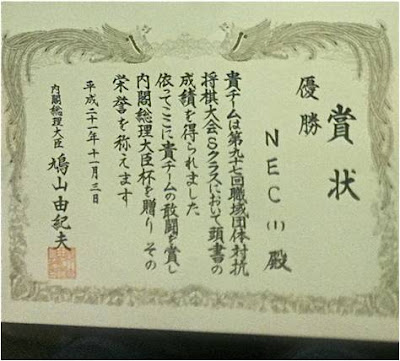 賞状
優勝
NEC(1)殿
貴チームは第九十七回職域団体対抗
将棋大会Sクラスにおいて頭書の
成績を得られました
依てここに貴チームの敢闘を賞し
内閣総理大臣杯を贈り その
栄誉を称えます
平成二十一年十一月三日
内閣総理大臣 鳩山由紀夫